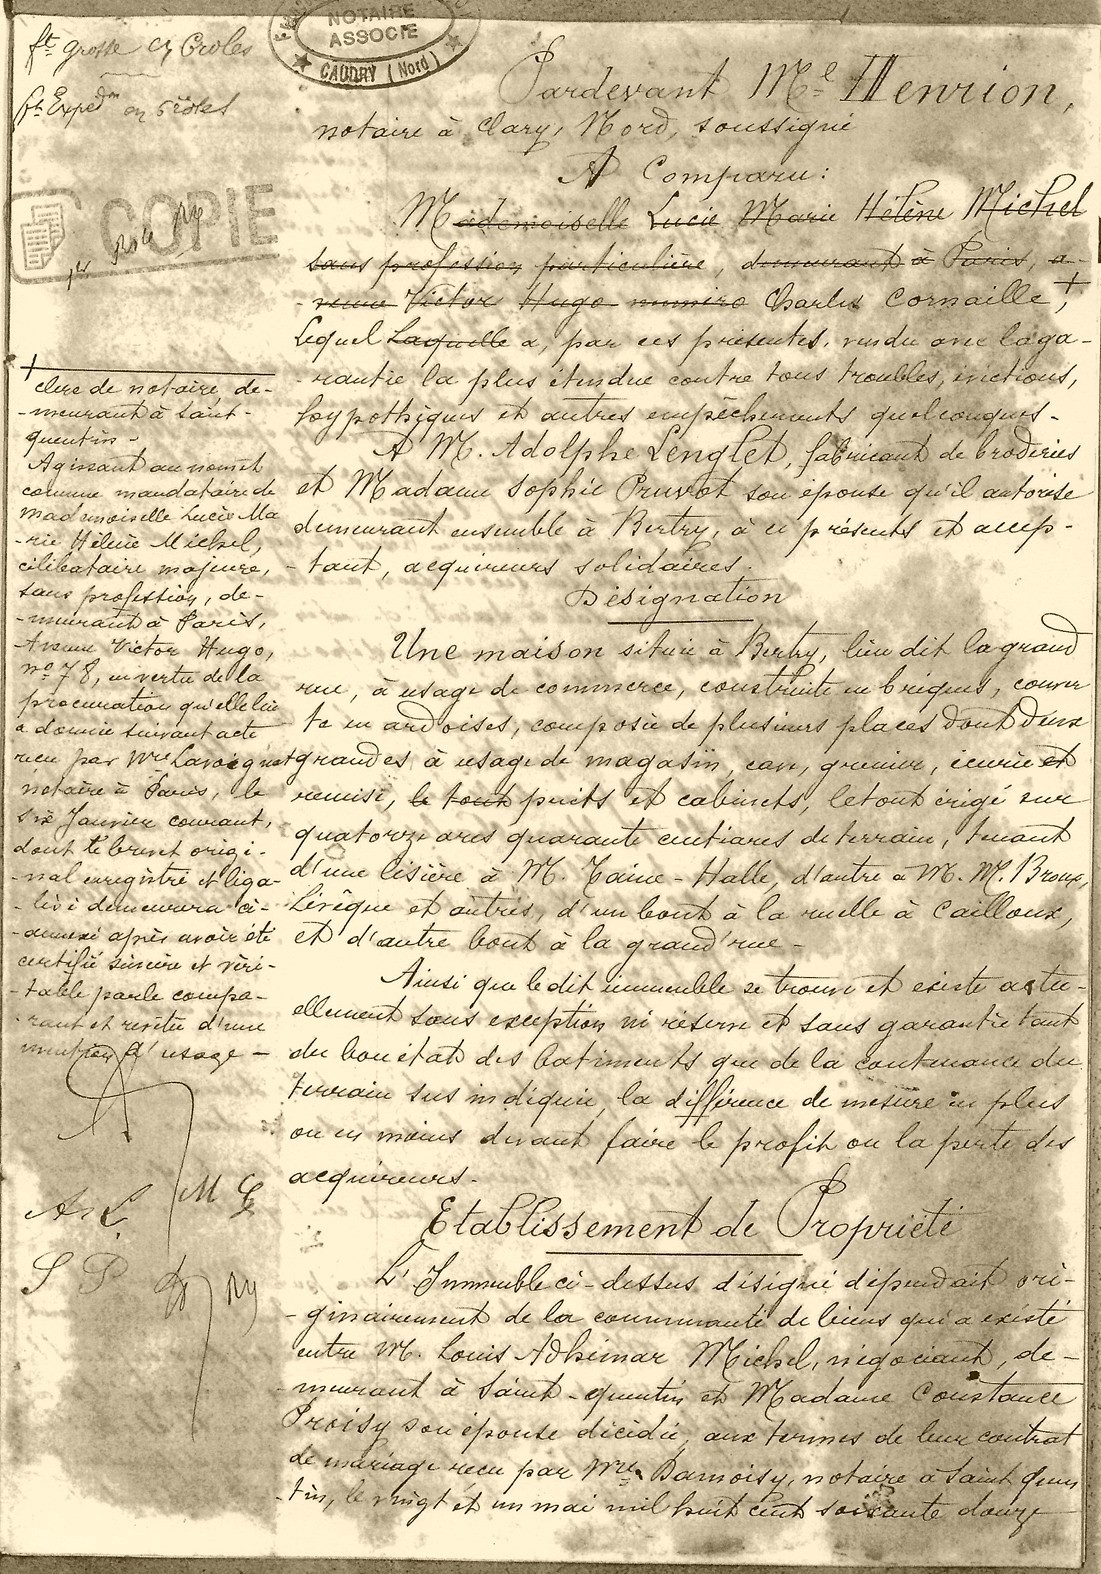 ft grosse en 6 roles
ft Expedon en 5 rôles
NOTAIRE
ASSOCIE
CAUDRY (Nord)
COPIE
1er Role
Pardevant Me Henrion,
notaire à Clary, Nord, soussigné
A Comparu:
Mademoiselle Lucie Marie Hélène Michel
sans profession particulière, demurant à Paris, a-
-venue Victor Hugo numéro Charles Cornaille +,
Lequel Laquelle a, par ces présentes, vendu avec la ga-
-rantie la plus étendue contre tous troubles, évictions,
hypothèques et autres empêchements quelconques-
A M. Adolphe Lenglet, fabricant de broderies
et Madame Sophie Pruvot son épouse qu'il autorise
demeurant ensemble à Bertry, à ce présents et accep-
-tant, acquéreurs solidaires.
Désignation
Une maison située à Bertry, lieu dit la grand
rue, à usage de commerce, construite en briques, couver
te en ardoises, composée de plusieurs places dont deux
grandes à usage de magasin, cave, grenier, écurie et
remise, le tout puits et cabinets, le tout érigé sur
quatorze ares quarante centiares de terrain, tenant
d'une lisière à M. Taine-Halle, d'autre à M. M. Broux,
Lévêque et autres, d'un bout à la ruelle à Cailloux,
et d'autre bout à la grand'rue -
Ainsi que le dit immeuble se trouve et existe actu-
ellement sans exception ni réserve et sans garantie tant
du bon état des batiments que de la contenance du
terrain sus indiquée, la différence de mesure en plus
ou en moins devant faire le profit ou la perte des
acquéreurs-
Etablissement de Propriété
L'Immeuble ci-dessus désigné dépendait ori-
-ginairement de la communauté de biens qui a existé
entre M. Louis Adhémar Michel, négociant, de-
-meurant à Saint-quentin et Madame Constance
Proisy son épouse décédée, aux termes de leur contrat
de mariage reçu par Me Damoisy, notaire à Saint Quen
-tin, le vingt et un mai mil huit cent soixante douze
+ clerc de notaire, de-
-meurant à Saint-
quentin-
Agissant au nom et
comme mandataire de
mademoiselle Lucie Ma
-rie Hélène Michel,
célibataire majeure,
sans profession, de-
-meurant à Paris,
Avenue Victor Hugo,
no 78, en vertu de la
procuration qu'elle lui
a donnée suivant acte
reçu par Me Lavoignat
notaire à Paris, le
six Janvier courant,
dont le brevet origi-
-nal enregistré et léga-
-lisé demeurera ci-
-annexé après avoir été
certifié sincère et véri-
-table par le compa-
-rant et revêtu d'une
mention d'usage -
A L
M L
S P